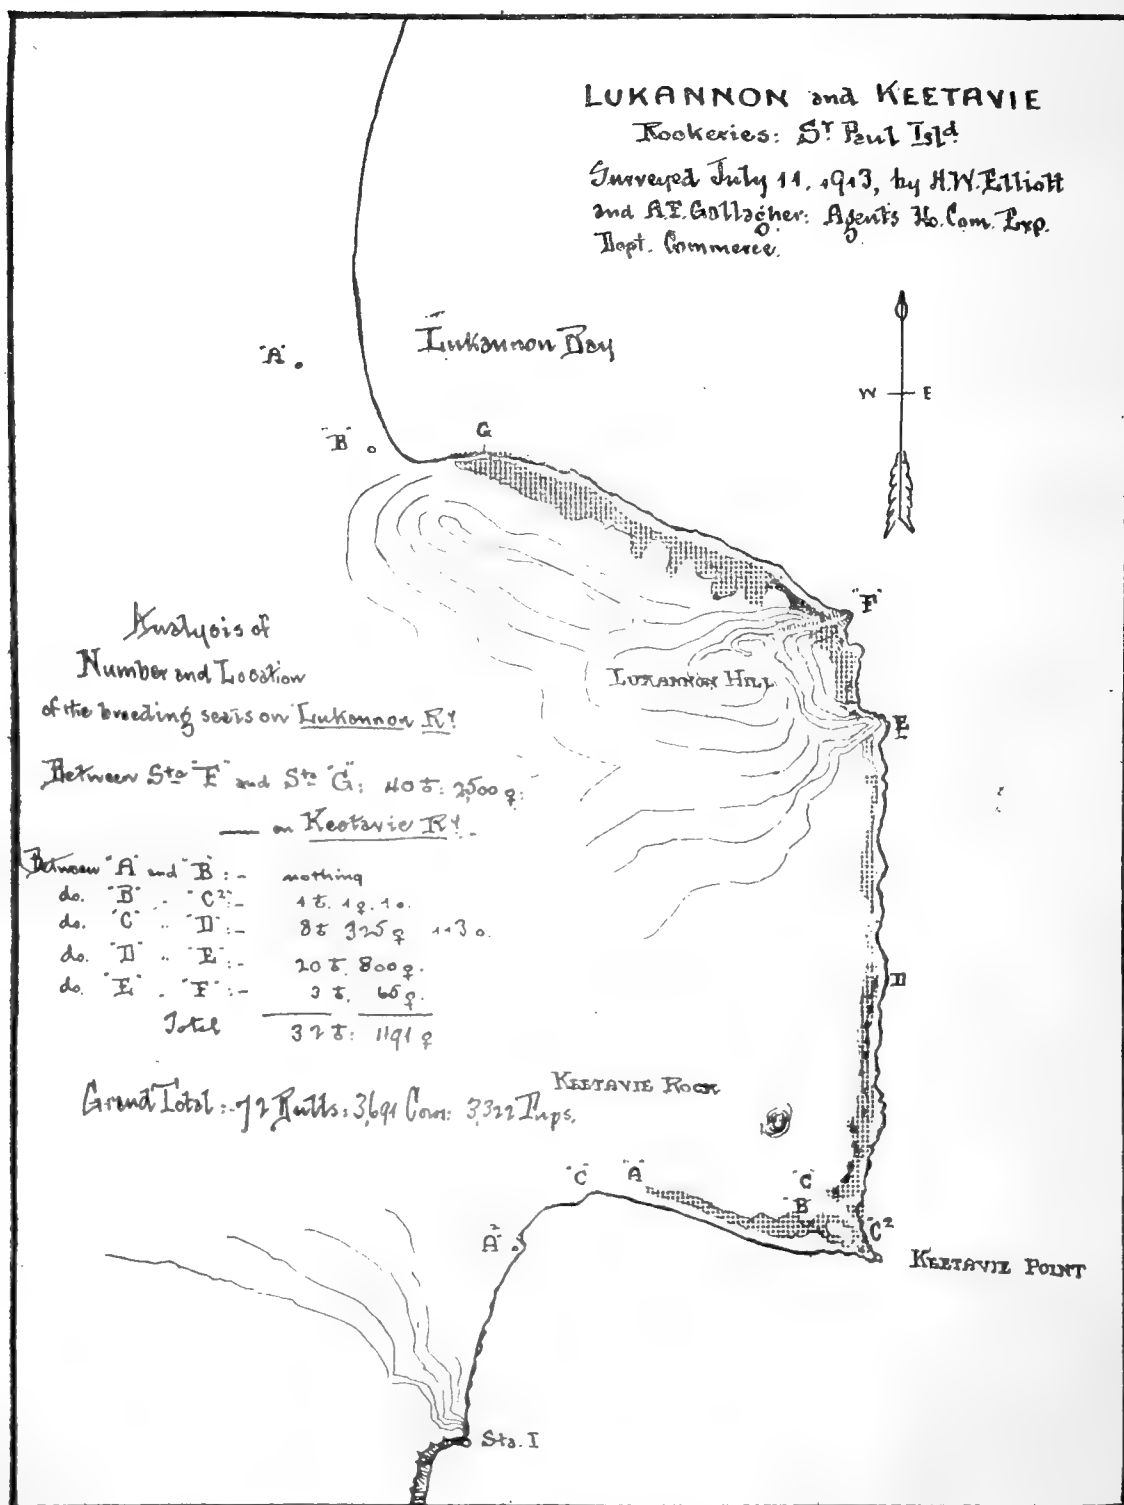 LUKANNON and KEETAVIE
Rookeries: St Paul Isld.
Surveyed July 11, 1913, by H.W. Elliott
and A.F. Gallagher: Agents Ho. Com. Exp.
Dept. Commerce.
Lukannon Bay
"A"
W E
"B"
G
"F"
LUKANNON HILL
E
Analysis of
Number and Location
of the breeding seals on Lukannon Ry.
Between Sta "F" and Sta "G": 40 ♂: 2,500 ♀:
— on Keetavie Ry. -
Between "A" and "B":- nothing
do. "B" .. "C2":- 1 ♂. 1 ♀. 1 o.
do. "C" .. "D":- 8 ♂ 325 ♀ 113 o.
do. "D" .. "E":- 20 ♂. 800 ♀.
do. "E" . "F":- 3 ♂. 65 ♀.
Total 32 ♂: 1191 ♀
D
Grand Total:- 72 Bulls: 3,691 Cows: 3,322 Pups.
KEETAVIE ROCK
"C" "A"
"C"
"B"
"C2
A2
KEETAVIE POINT
Sta. I